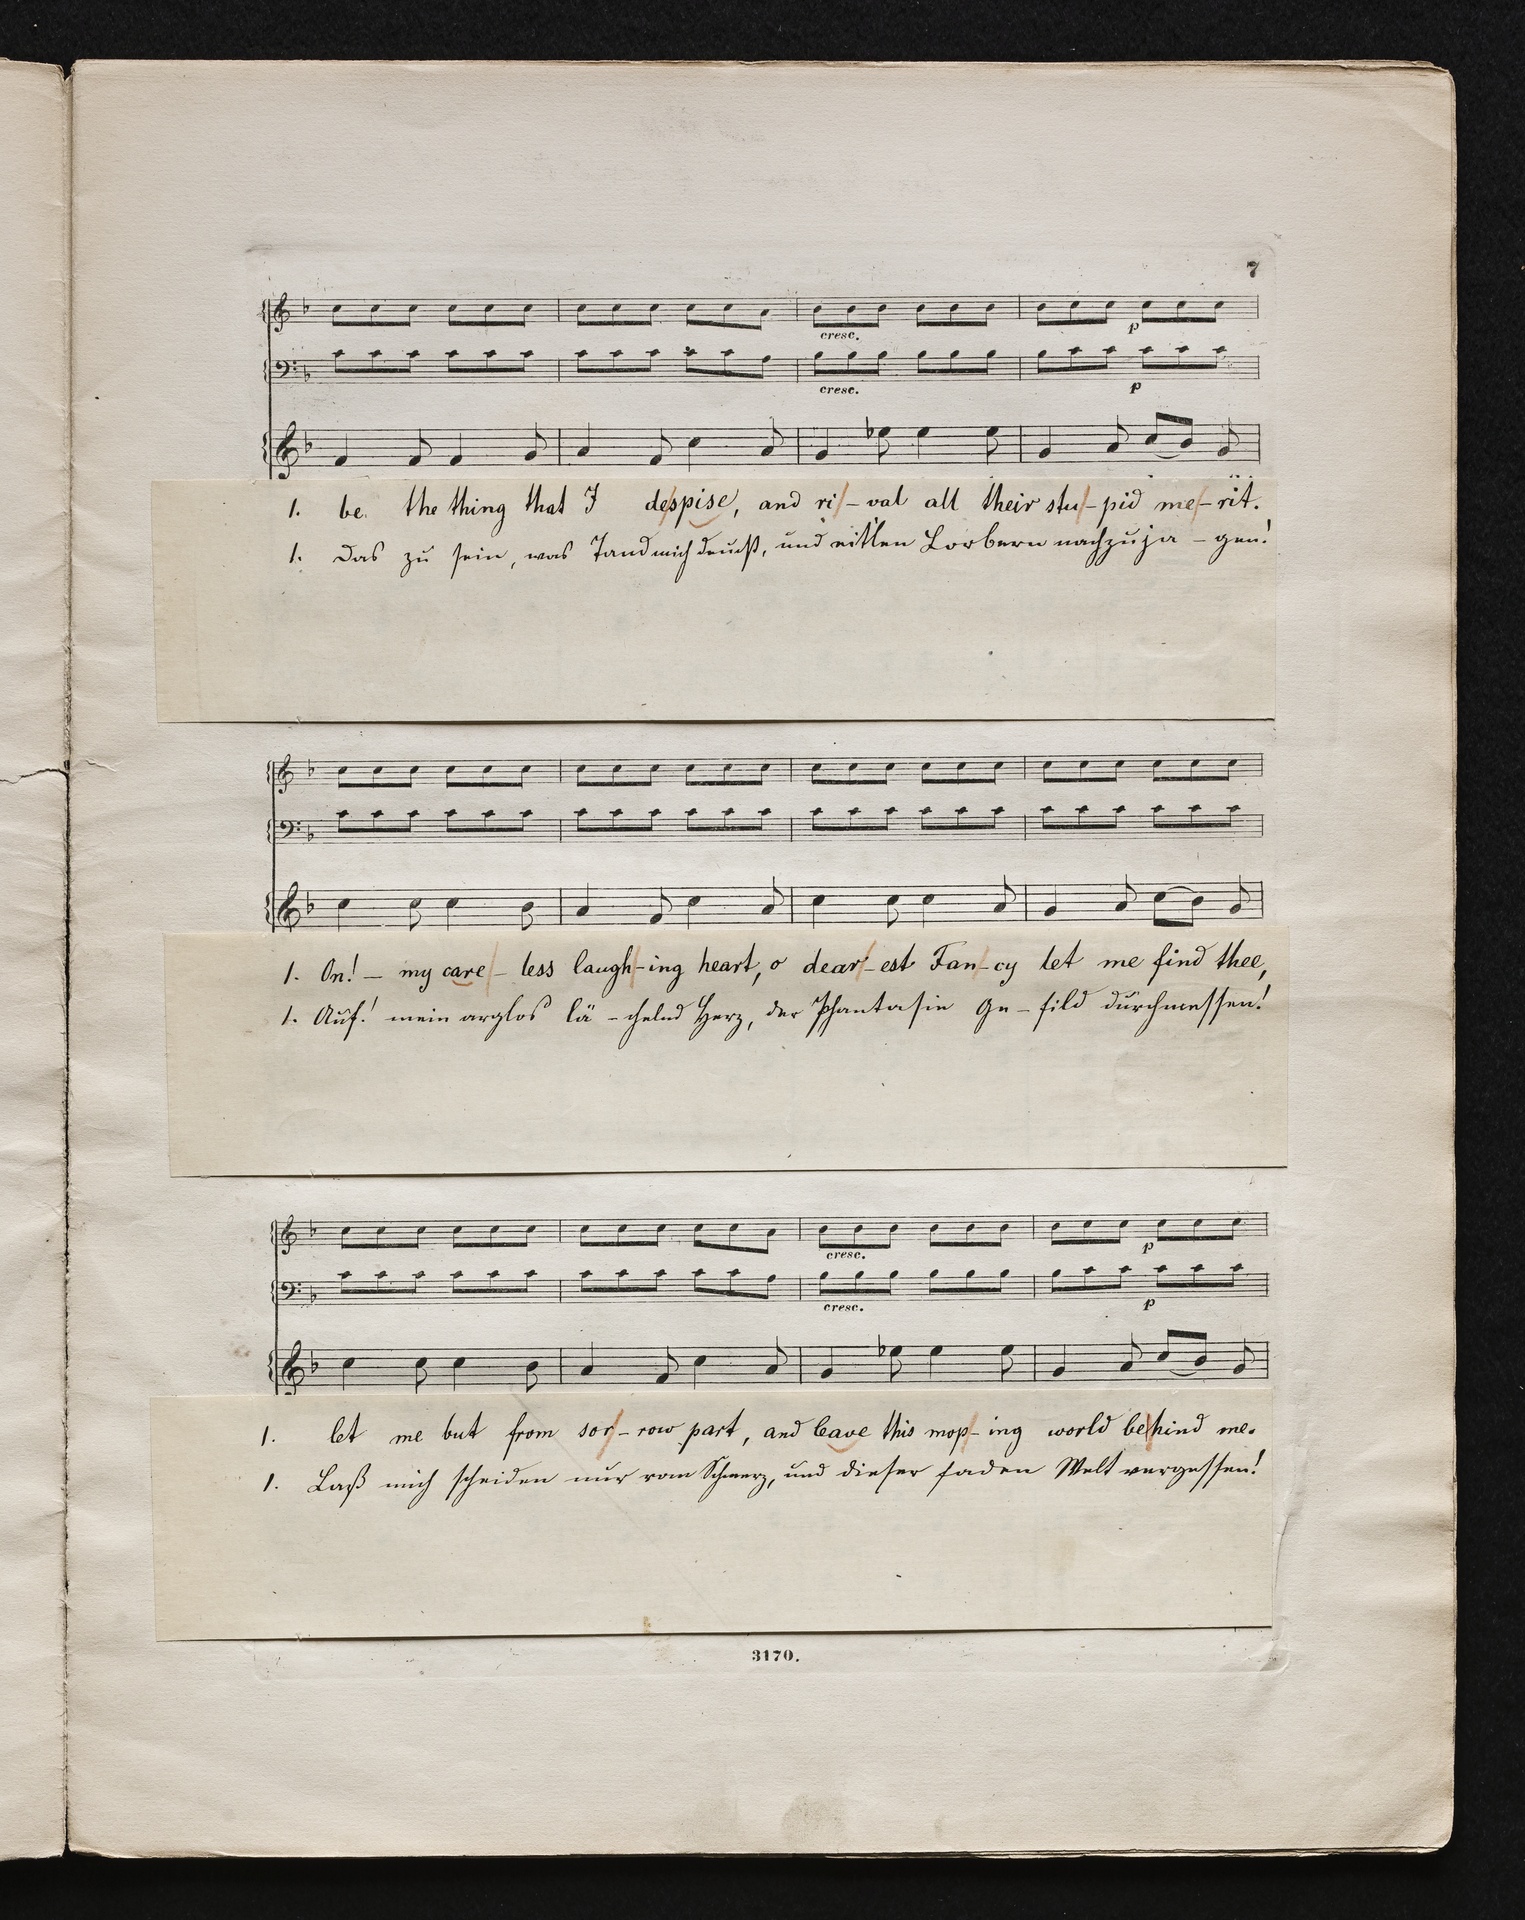 7
cresc. p
cresc. p
1. be the thing that I despise, and ri - val all their stu - pid me - rit.
1. Das zu sein, was Tand mich deucht, und eitlen Lorbern nachzuja - gen!
1. On! - my care - less laugh - ing heart, o dear - est Fan - cy let me find thee,
1. Auf! mein arglos lä - chelnd Herz, der Phantasie Ge - fild durchmessen!
cresc. p
cresc. p
1. let me but from sor - row part, and leave this mop - ing world behind me.
1. Laß mich scheiden nur vom Schmerz, und dieser faden Welt vergessen!
3170.